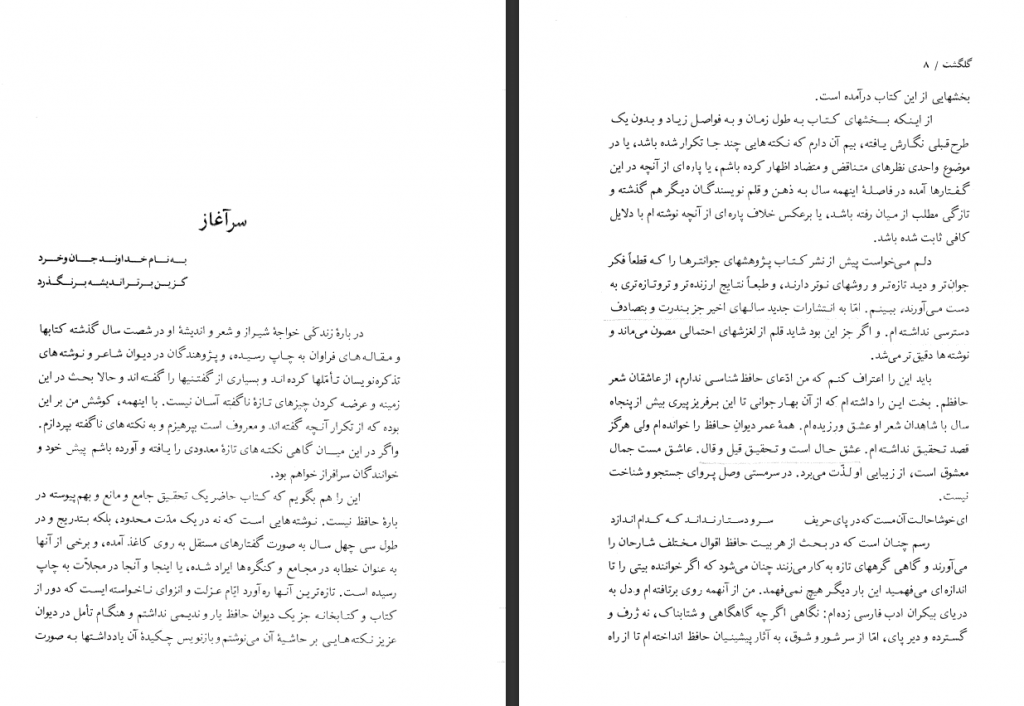 سرآغاز
به نام خداوند جان و خرد
کزین برتر اندیشه برنگذرد
در بارهٔ زندگی خواجهٔ شیراز و شعر و اندیشهٔ او در شصت سال گذشته کتابها
و مقاله‌های فراوان به چاپ رسیده، و پژوهندگان در دیوان شاعر و نوشته‌های
تذکره‌نویسان تأمّلها کرده‌اند و بسیاری از گفتنیها را گفته‌اند و حالا بحث در این
زمینه و عرضه کردن چیزهای تازهٔ ناگفته آسان نیست. با اینهمه، کوشش من بر این
بوده که از تکرار آنچه گفته‌اند و معروف است بپرهیزم و به نکته‌های ناگفته بپردازم.
واگر در این میسان گاهی نکته‌های تازهٔ معدودی را یافته و آورده باشم پیش خود و
خوانندگان سرافراز خواهم بود.
این را هم بگویم که کتاب حاضر یک تحقیق جامع و مانع و بهم پیوسته در
بارهٔ حافظ نیست. نوشته‌هایی است که نه در یک مدّت محدود، بلکه بتدریج و در
طول سی چهل سال به صورت گفتارهای مستقل به روی کاغذ آمده، و برخی از آنها
به عنوان خطابه در مجامع و کنگره‌ها ایراد شده، یا اینجا و آنجا در مجلّات به چاپ
رسیده است. تازه‌ترین آنها ره‌آورد ایّام عزلت و انزوای ناخواسته ایست که دور از
کتاب و کتابخانه جز یک دیوان حافظ یار و ندیمی نداشتم و هنگام تأمل در دیوان
عزیز نکته‌هایی بر حاشیهٔ آن می‌نوشتم و بازنویس چکیدهٔ آن یادداشتها به صورت
گلگشت / ۸
بخشهایی از این کتاب درآمده است.
از اینکه بخشهای کتاب به طول زمان و به فواصل زیاد و بدون یک
طرح قبلی نگارش یافته، بیم آن دارم که نکته‌هایی چند جا تکرار شده باشد، یا در
موضوع واحدی نظرهای متناقض و متضاد اظهار کرده باشم، یا پاره‌ای از آنچه در این
گفتارها آمده در فاصلهٔ اینهمه سال به ذهن و قلم نویسندگان دیگر هم گذشته و
تازگی مطلب از میان رفته باشد، یا برعکس خلاف پاره‌ای از آنچه نوشته‌ام با دلایل
کافی ثابت شده باشد.
دلم می‌خواست پیش از نشر کتاب پژوهشهای جوانترها را که قطعاً فکر
جوان‌تر و دید تازه‌تر و روشهای نوتر دارند، و طبعاً نتایج ارزنده‌تر و تروتازه‌تری به
دست می‌آورند، ببینم. امّا به انتشارات جدید سالهای اخیر جز بندرت و بتصادف
دسترسی نداشته‌ام. و اگر جز این بود شاید قلم از لغزشهای احتمالی مصون می‌ماند و
نوشته‌ها دقیق‌تر می‌شد.
باید این را اعتراف کنم که من ادّعای حافظ شناسی ندارم، از عاشقان شعر
حافظم. بخت این را داشته‌ام که از آن بهار جوانی تا این برفریز پیری بیش از پنجاه
سال با شاهدان شعر او عشق ورزیده‌ام. همهٔ عمر دیوانِ حافظ را خوانده‌ام ولی هرگز
قصد تحقیق نداشته‌ام. عشق حال است و تحقیق قیل و قال. عاشق مست جمال
معشوق است، از زیبایی او لذّت می‌برد. در سرمستی وصل پروای جستجو و شناخت
نیست.
ای خوشا حالت آن مست که در پای حریف سر و دستار نداند که کدام اندازد
رسم چنان است که در بحث از هر بیت حافظ اقوال مختلف شارحان را
می‌آورند و گاهی گرههای تازه به کار می‌زنند چنان می‌شود که اگر خواننده بیتی را تا
اندازه‌ای می‌فهمید این بار دیگر هیچ نمی‌فهمد. من از آنهمه روی برتافته‌ام و دل به
دریای بیکران ادب فارسی زده‌ام: نگاهی اگر چه گاهگاهی و شتابناک، نه ژرف و
گسترده و دیر پای، امّا از سر شور و شوق، به آثار پیشینیان حافظ انداخته‌ام تا از راه